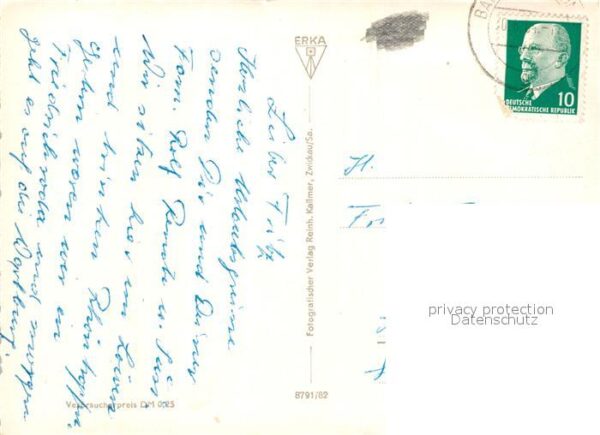 Lieber Fritz
Herzliche Urlaubsgrüsse
senden Dir und Deiner
Fam. Rolf Renate u.
Wir sitzen hier im Löwen
und trinken
Gestern waren wir in
Friedrichroda und morgen
geht es auf die Wartburg.
Verbraucherpreis DM 0,25
ERKA
Fotografischer Verlag Reinh. Kallmer, Zwickau/Sa.
8791/82
DEUTSCHE
DEMOKRATISCHE REPUBLIK
10
H.
privacy protection
Datenschutz